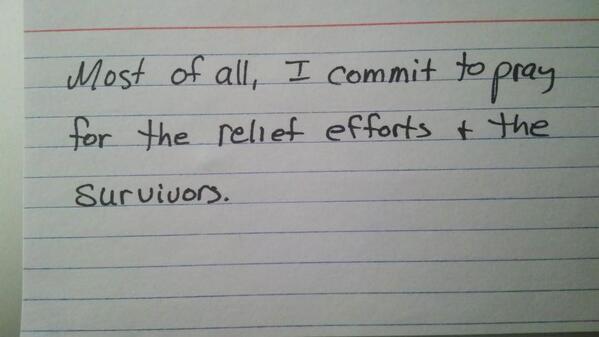 Most of all, I commit to pray
for the relief efforts + the
survivors.